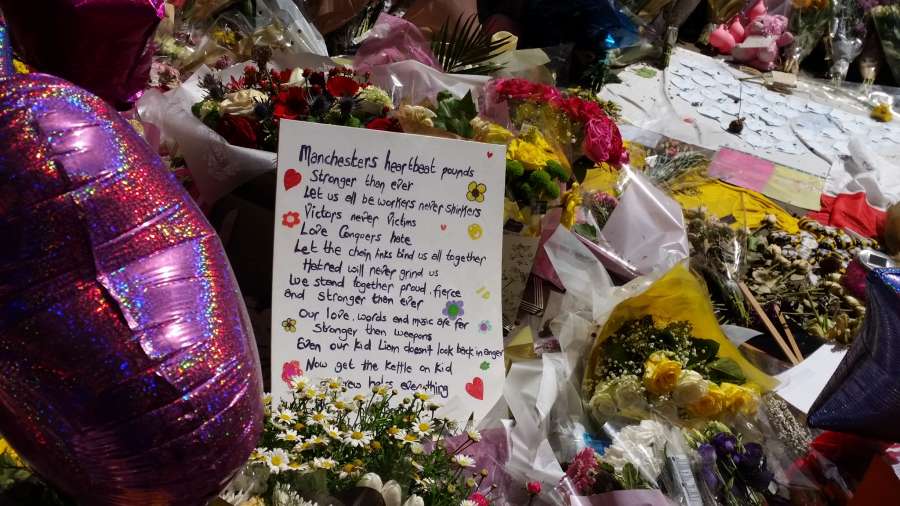 Manchesters heartbeat pounds
Stronger then ever
Let us all be workers never shirkers
Victors never victims
Love Conquers hate
Let the chain links bind us all together
Hatred will never grind us
We stand together proud, fierce
and stronger then ever
Our love, words and music are far
Stronger then weapons
Even our kid Liam doesn't look back in anger
Now get the kettle on kid
brew helps everything